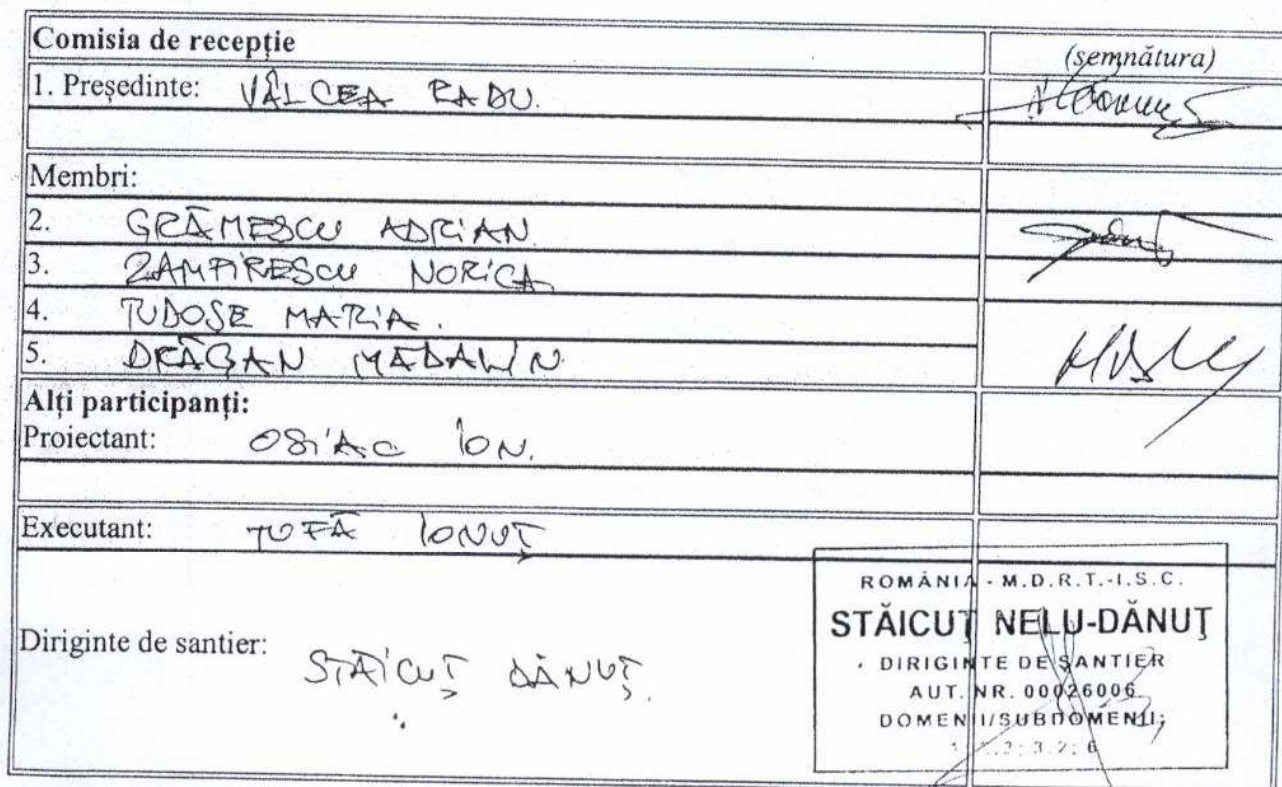 Comisia de recepție
(semnătura)
1. Președinte: VÂLCEA RADU.
Membri:
2. GRĂMESCU ADRIAN
3. ZAMFIRESCU NORICA
4. TUDOSE MARIA.
5. DRĂGAN MĂDĂLIN
Alți participanți:
Proiectant: OSIAC ION.
Executant: TUFĂ IONUȚ
Diriginte de santier: STĂICUȚ DĂNUȚ.
ROMÂNIA - M.D.R.T.-I.S.C.
STĂICUȚ NELU-DĂNUȚ
DIRIGINTE DE ȘANTIER
AUT. NR. 00026006
DOMENII/SUBDOMENII;
3.2; 6